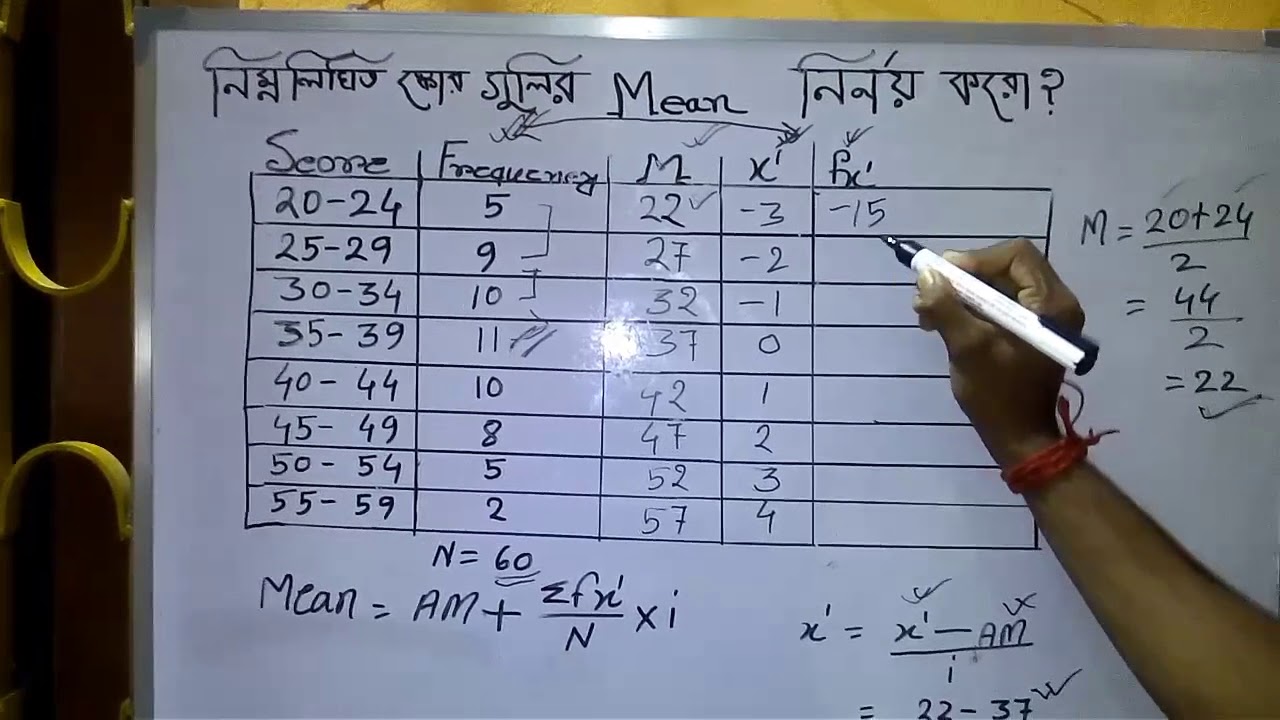 নিম্নলিখিত স্কোর গুলির Mean নির্নয় করো?
Score Frequency M x' fx'
20-24 5 22 -3 -15
25-29 9 27 -2
30-34 10 32 -1
35-39 11 37 0
40-44 10 42 1
45-49 8 47 2
50-54 5 52 3
55-59 2 57 4
N = 60
Mean = AM + Σfx'/N × i
M = 20+24/2
= 44/2
= 22
x' = x' - AM/i
= 22-37